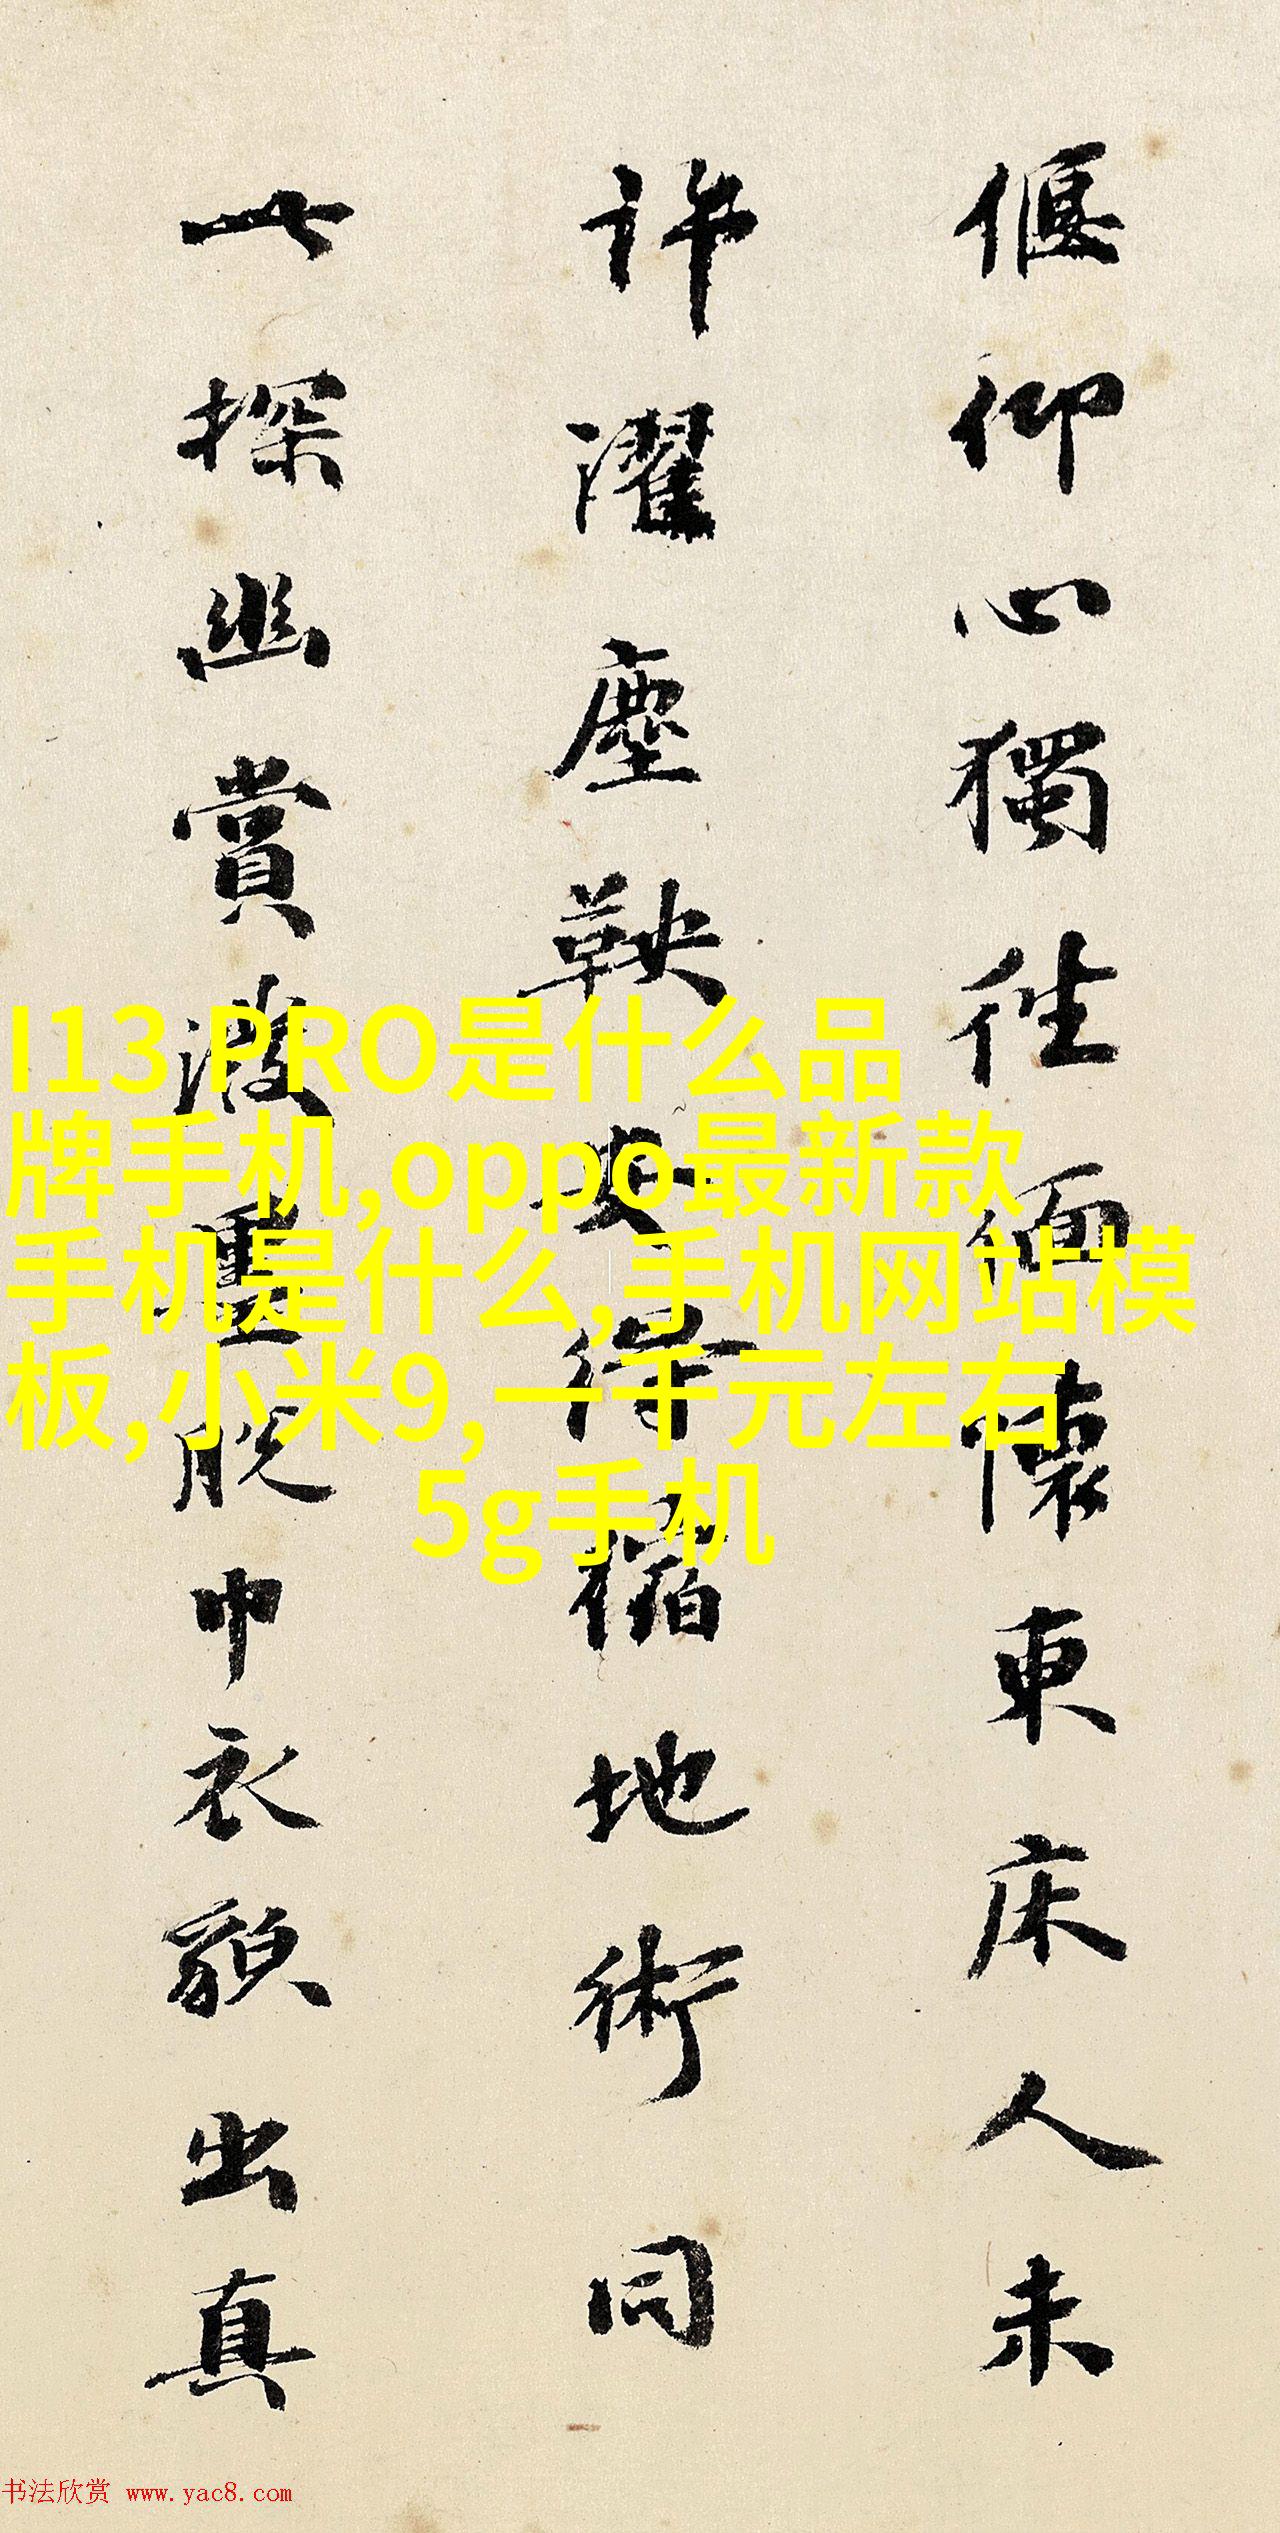 偃仰心獨往緬懷東床人未
許濯塵鞅安得縮地術同
探幽賞脱巾衣貌出真
I13 PRO是什么品
牌手机,oppo最新款
手机是什么,手机网站模
板,小米9,一千元左右
5g手机
书法欣赏 www.yac8.com